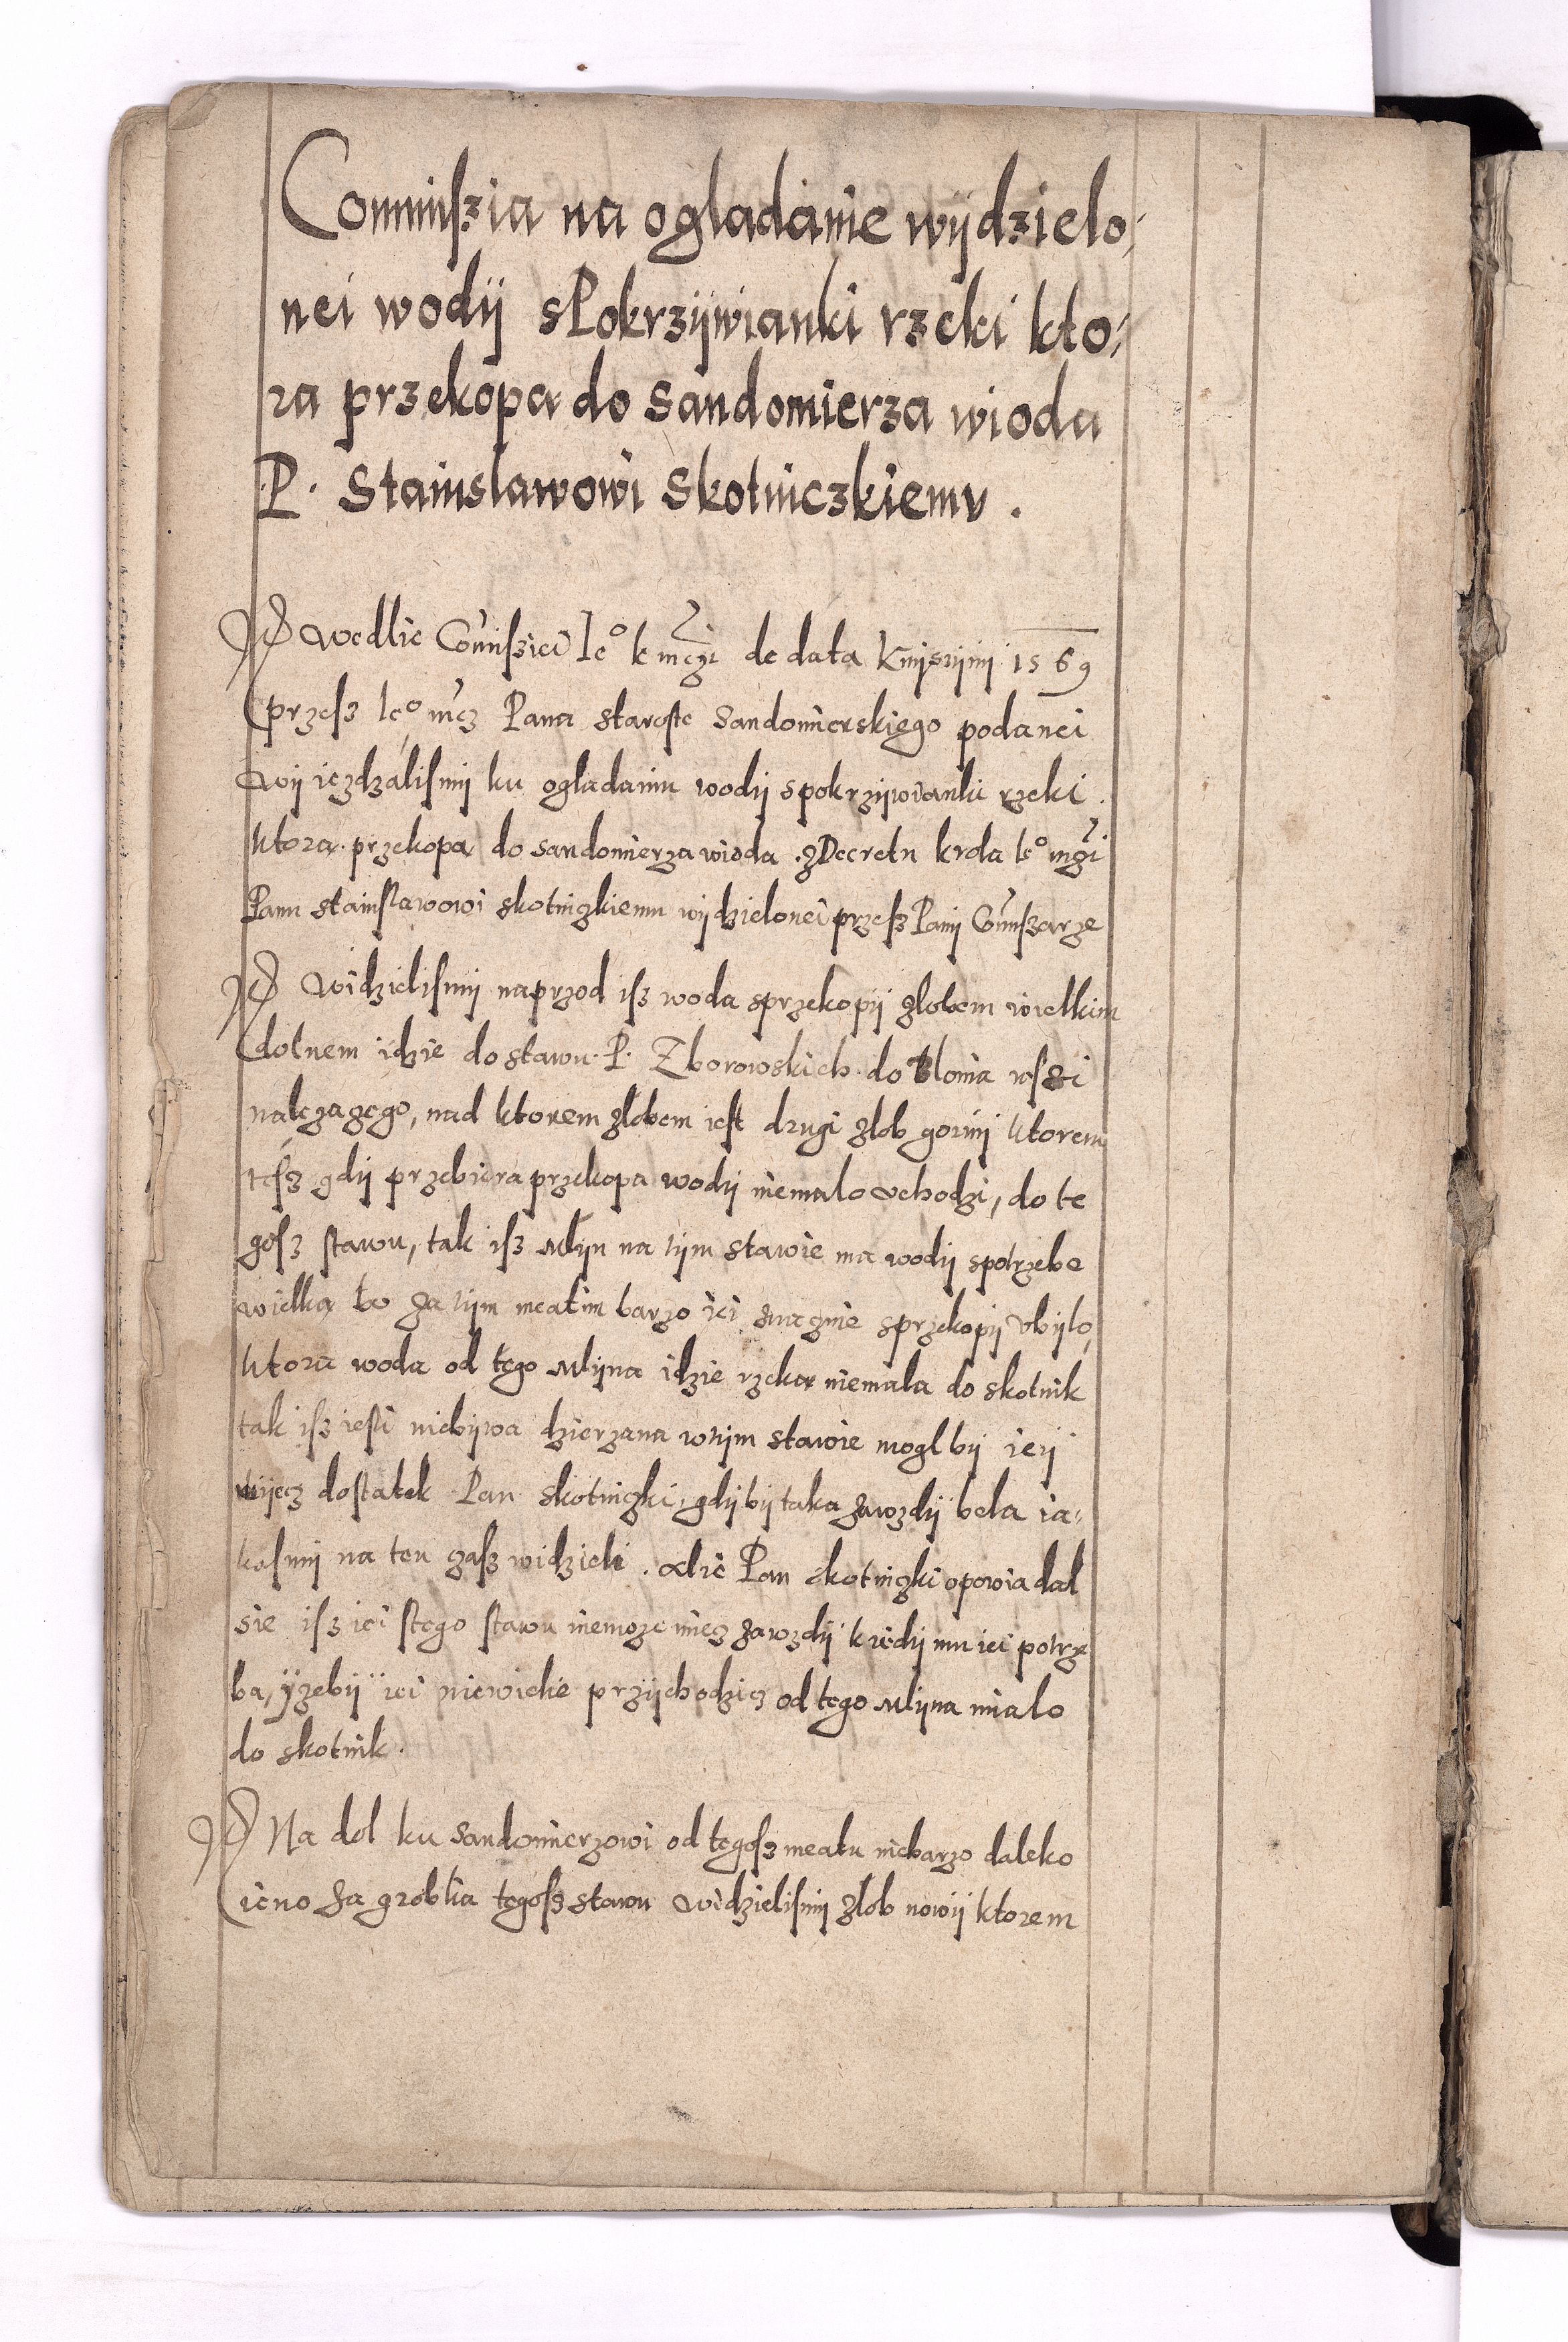 Commiszia na ogladanie wÿdzielo-
nei wodÿ sPokrzÿwianki rzeki kto-
ra przekopa do Sandomierza wioda
P. Stanislawowi Skotniczkiemu.
Wedlie Comiszieï Ieº k mczi de data Knÿsÿnÿ 1569
przesz Ieº mcz Pana staroste Sandomierskiego podanei
wÿ iezdzalismÿ ku ogladaniu wodÿ spokrzÿwianki rzeki.
ktora przekopa do sandomierza wioda z Decretu krola Ieº mczi
Panu stanislawowi skotnizkiemu wÿdzielonei przesz Panÿ Comiszarze
Widzielismÿ naprzod isz woda sprzekopÿ zlobem wielkim
dolnem idzie do stawu P. Zborowskich do Blonia wszi
nalezazego, nad ktorem zlobem iest drugi zlob gornÿ ktorem
tesz gdÿ przebiera przekopa wodÿ niemalo vchodzi, do te
gosz stawu, tak isz mlÿn na tÿm stawie ma wodÿ spotrzebe
wielka bo za tÿm meatim barzo iei znaznie sprzekopÿ vbÿlo,
ktora woda od tego mlÿna idzie rzeka niemala do skotnik
tak isz iesli niebÿwa dzierzana wtÿm stawie mogl bÿ ieÿ
miecz dostatek Pan skotnizki, gdÿ bÿ taka zawzdÿ bela ia-
kosmÿ na ten zasz widzieli. alie Pan skotnizki opowiadal
sie isz iei stego stawu niemoze miecz zawzdÿ kiedÿ mu iei potrze
ba, ÿ zebÿ iei niewielie przÿchodzicz od tego mlÿna mialo
do skotnik.
Na dol ku Sandomierzowi od tegosz meatu niebarzo daleko
ieno za groblia tegosz stawu widzielismÿ zlob nowÿ ktorem